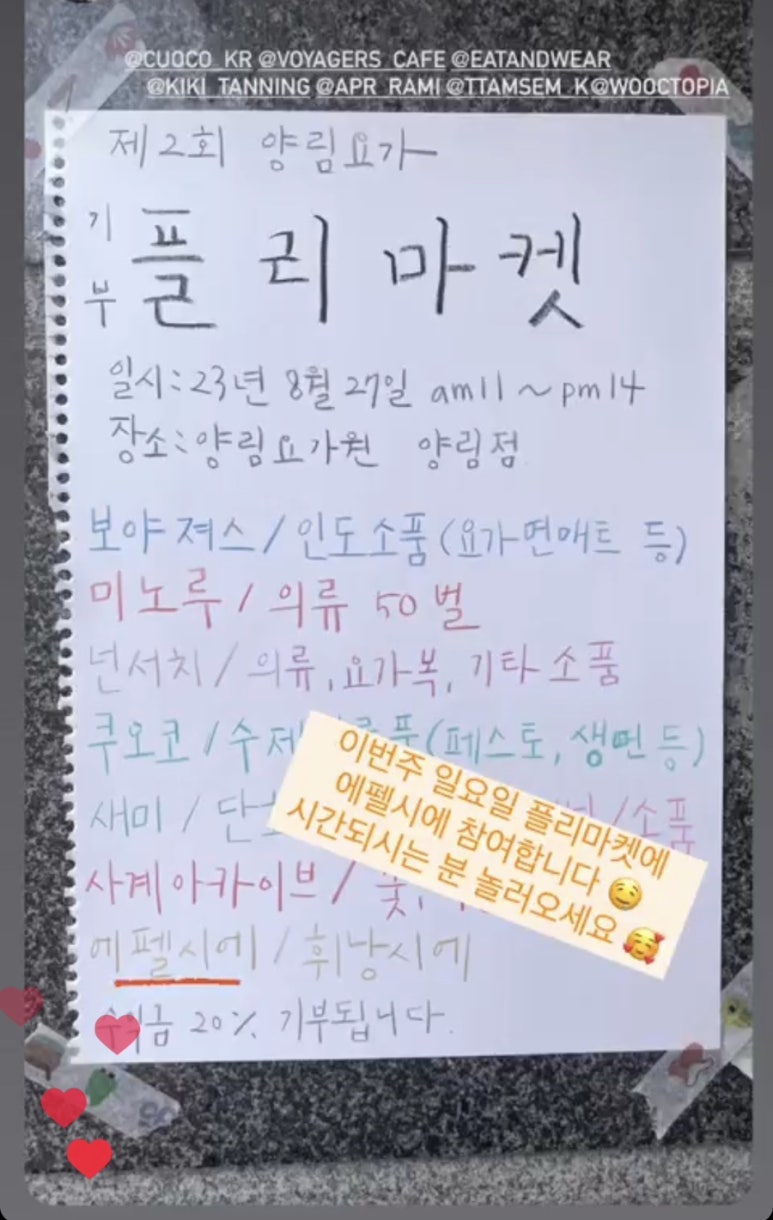 @CUOCO_KR @VOYAGERS_CAFE @EATANDWEAR
@KIKI_TANNING @APR_RAMI @TTAMSEM_K@WOOCTOPIA
제2회 양림요가
기부 플리마켓
일시:23년 8월 27일 am11~pm14
장소:양림요가원 양림점
보야져스/인도소품(요가면매트 등)
미노루/의류 50벌
넌서치/의류,요가복,기타소품
쿠오코/수제 (페스토,생면 등)
새미/ /소품
사계아카이브/꽃,
에펠시에/휘낭시에
20% 기부됩니다.
이번주 일요일 플리마켓에
에펠시에 참여합니다 🤤
시간되시는 분 놀러오세요 🥰